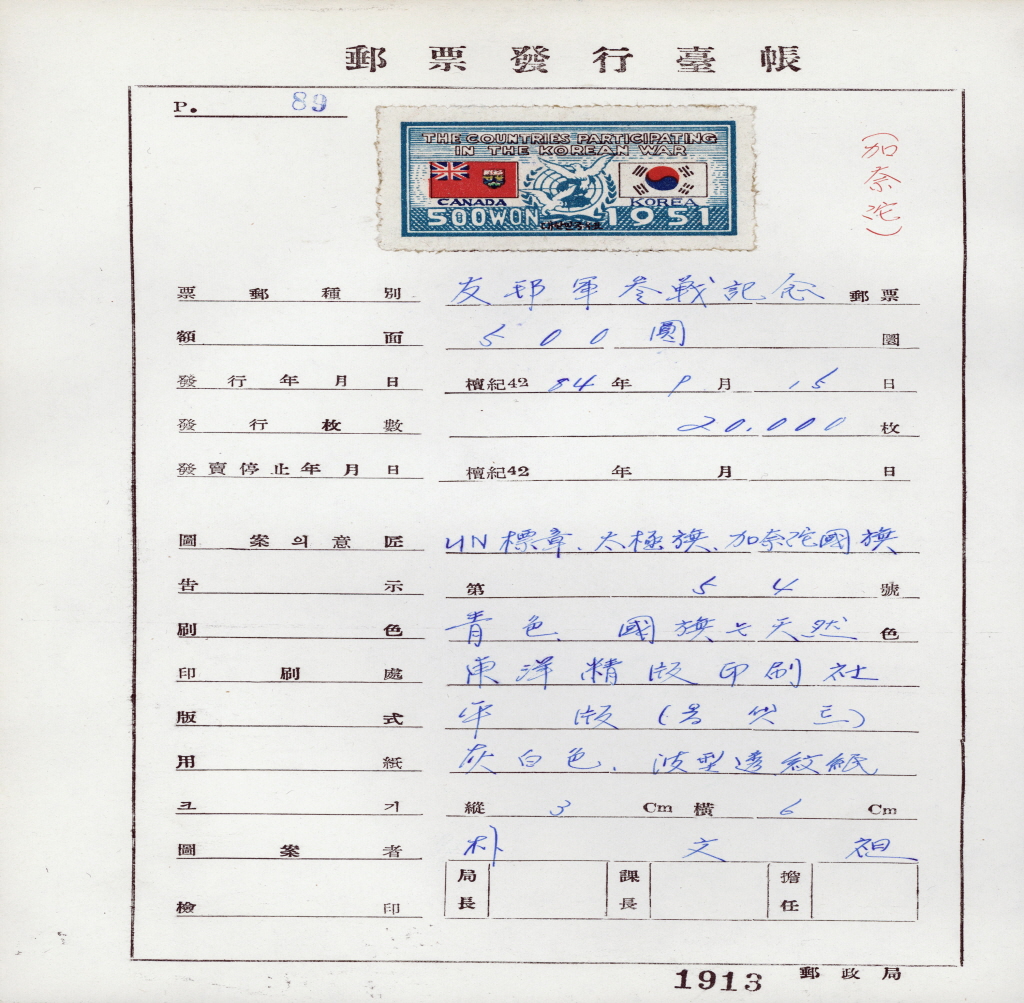 郵票發行臺帳
P. 89
THE COUNTRIES PARTICIPATING
IN THE KOREAN WAR
CANADA
KOREA
500WON
1951
(加奈陀)
票郵種別 友邦軍參戰記念 郵票
額面 500圓 圜
發行年月日 檀紀42 84年 9月 15日
發行枚數 20,000枚
發賣停止年月日 檀紀42 年 月 日
圖案의意匠 UN標章、太極旗、加奈陀國旗
告示 第 54 號
刷色 青色、國旗는天然色
印刷處 東洋精版印刷社
版式 平版(옵셋트)
用紙 灰白色、波型透紋紙
크기 縱 3 Cm 橫 6 Cm
圖案者 朴文祖
檢印 局長 課長 擔任
1913 郵政局